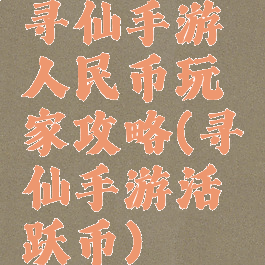 寻仙手游
人民币玩
家攻略(寻
仙手游活
跃币)